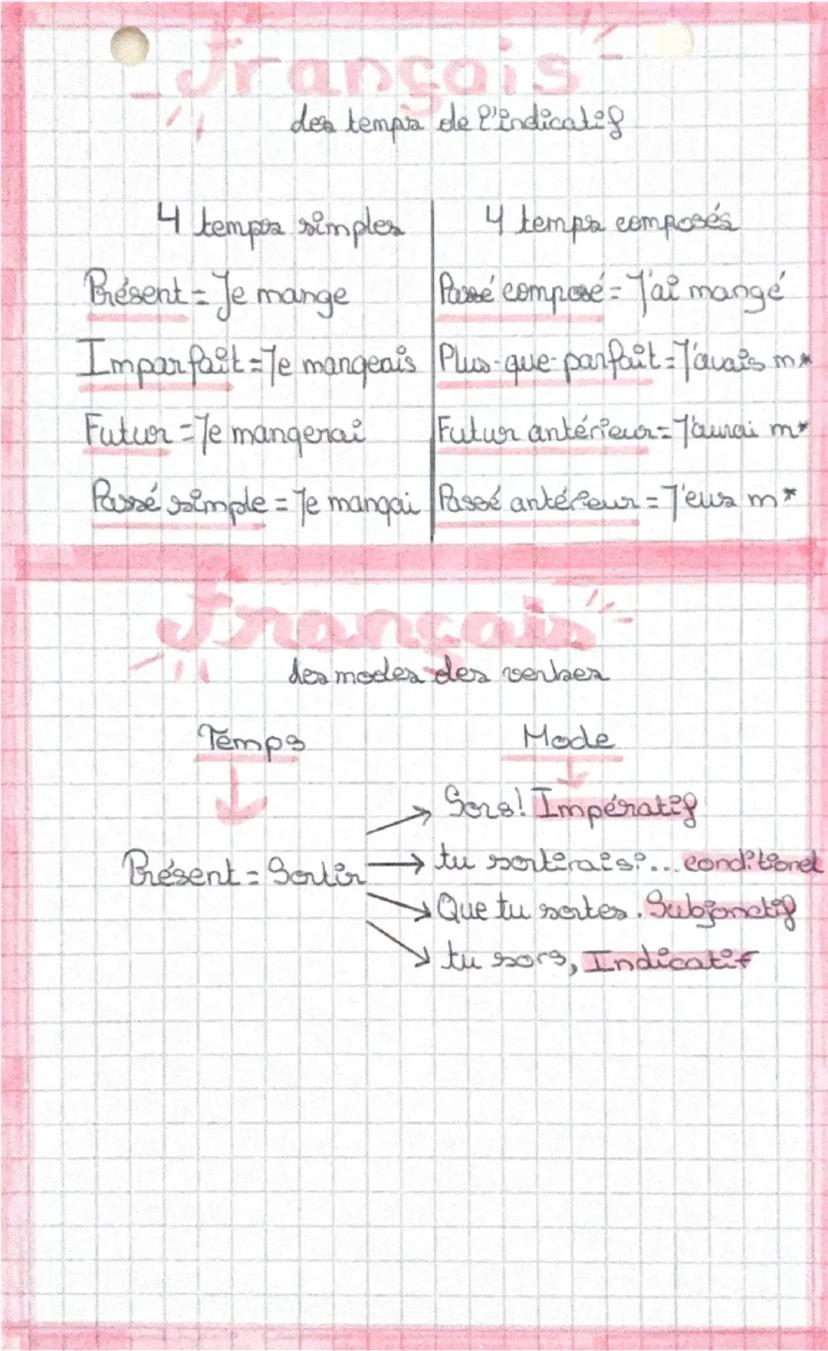 Français
des temps de l'indicatif
4 temps simples
4 temps composés
Présent = Je mange
Passé composé = J'ai mangé
Imparfait = Je mangeais
Plus-que-parfait = J'avais m*
Futur = Je mangerai
Futur antérieur = J'aurai m*
Passé simple = Je mangai
Passé antérieur = J'eus m*
Français
des modes des verbes
Temps
Mode
Présent = Sortir
Sors! Impératif
tu sortirais?... conditionel
Que tu sortes. Subjonctif
tu sors, Indicatif